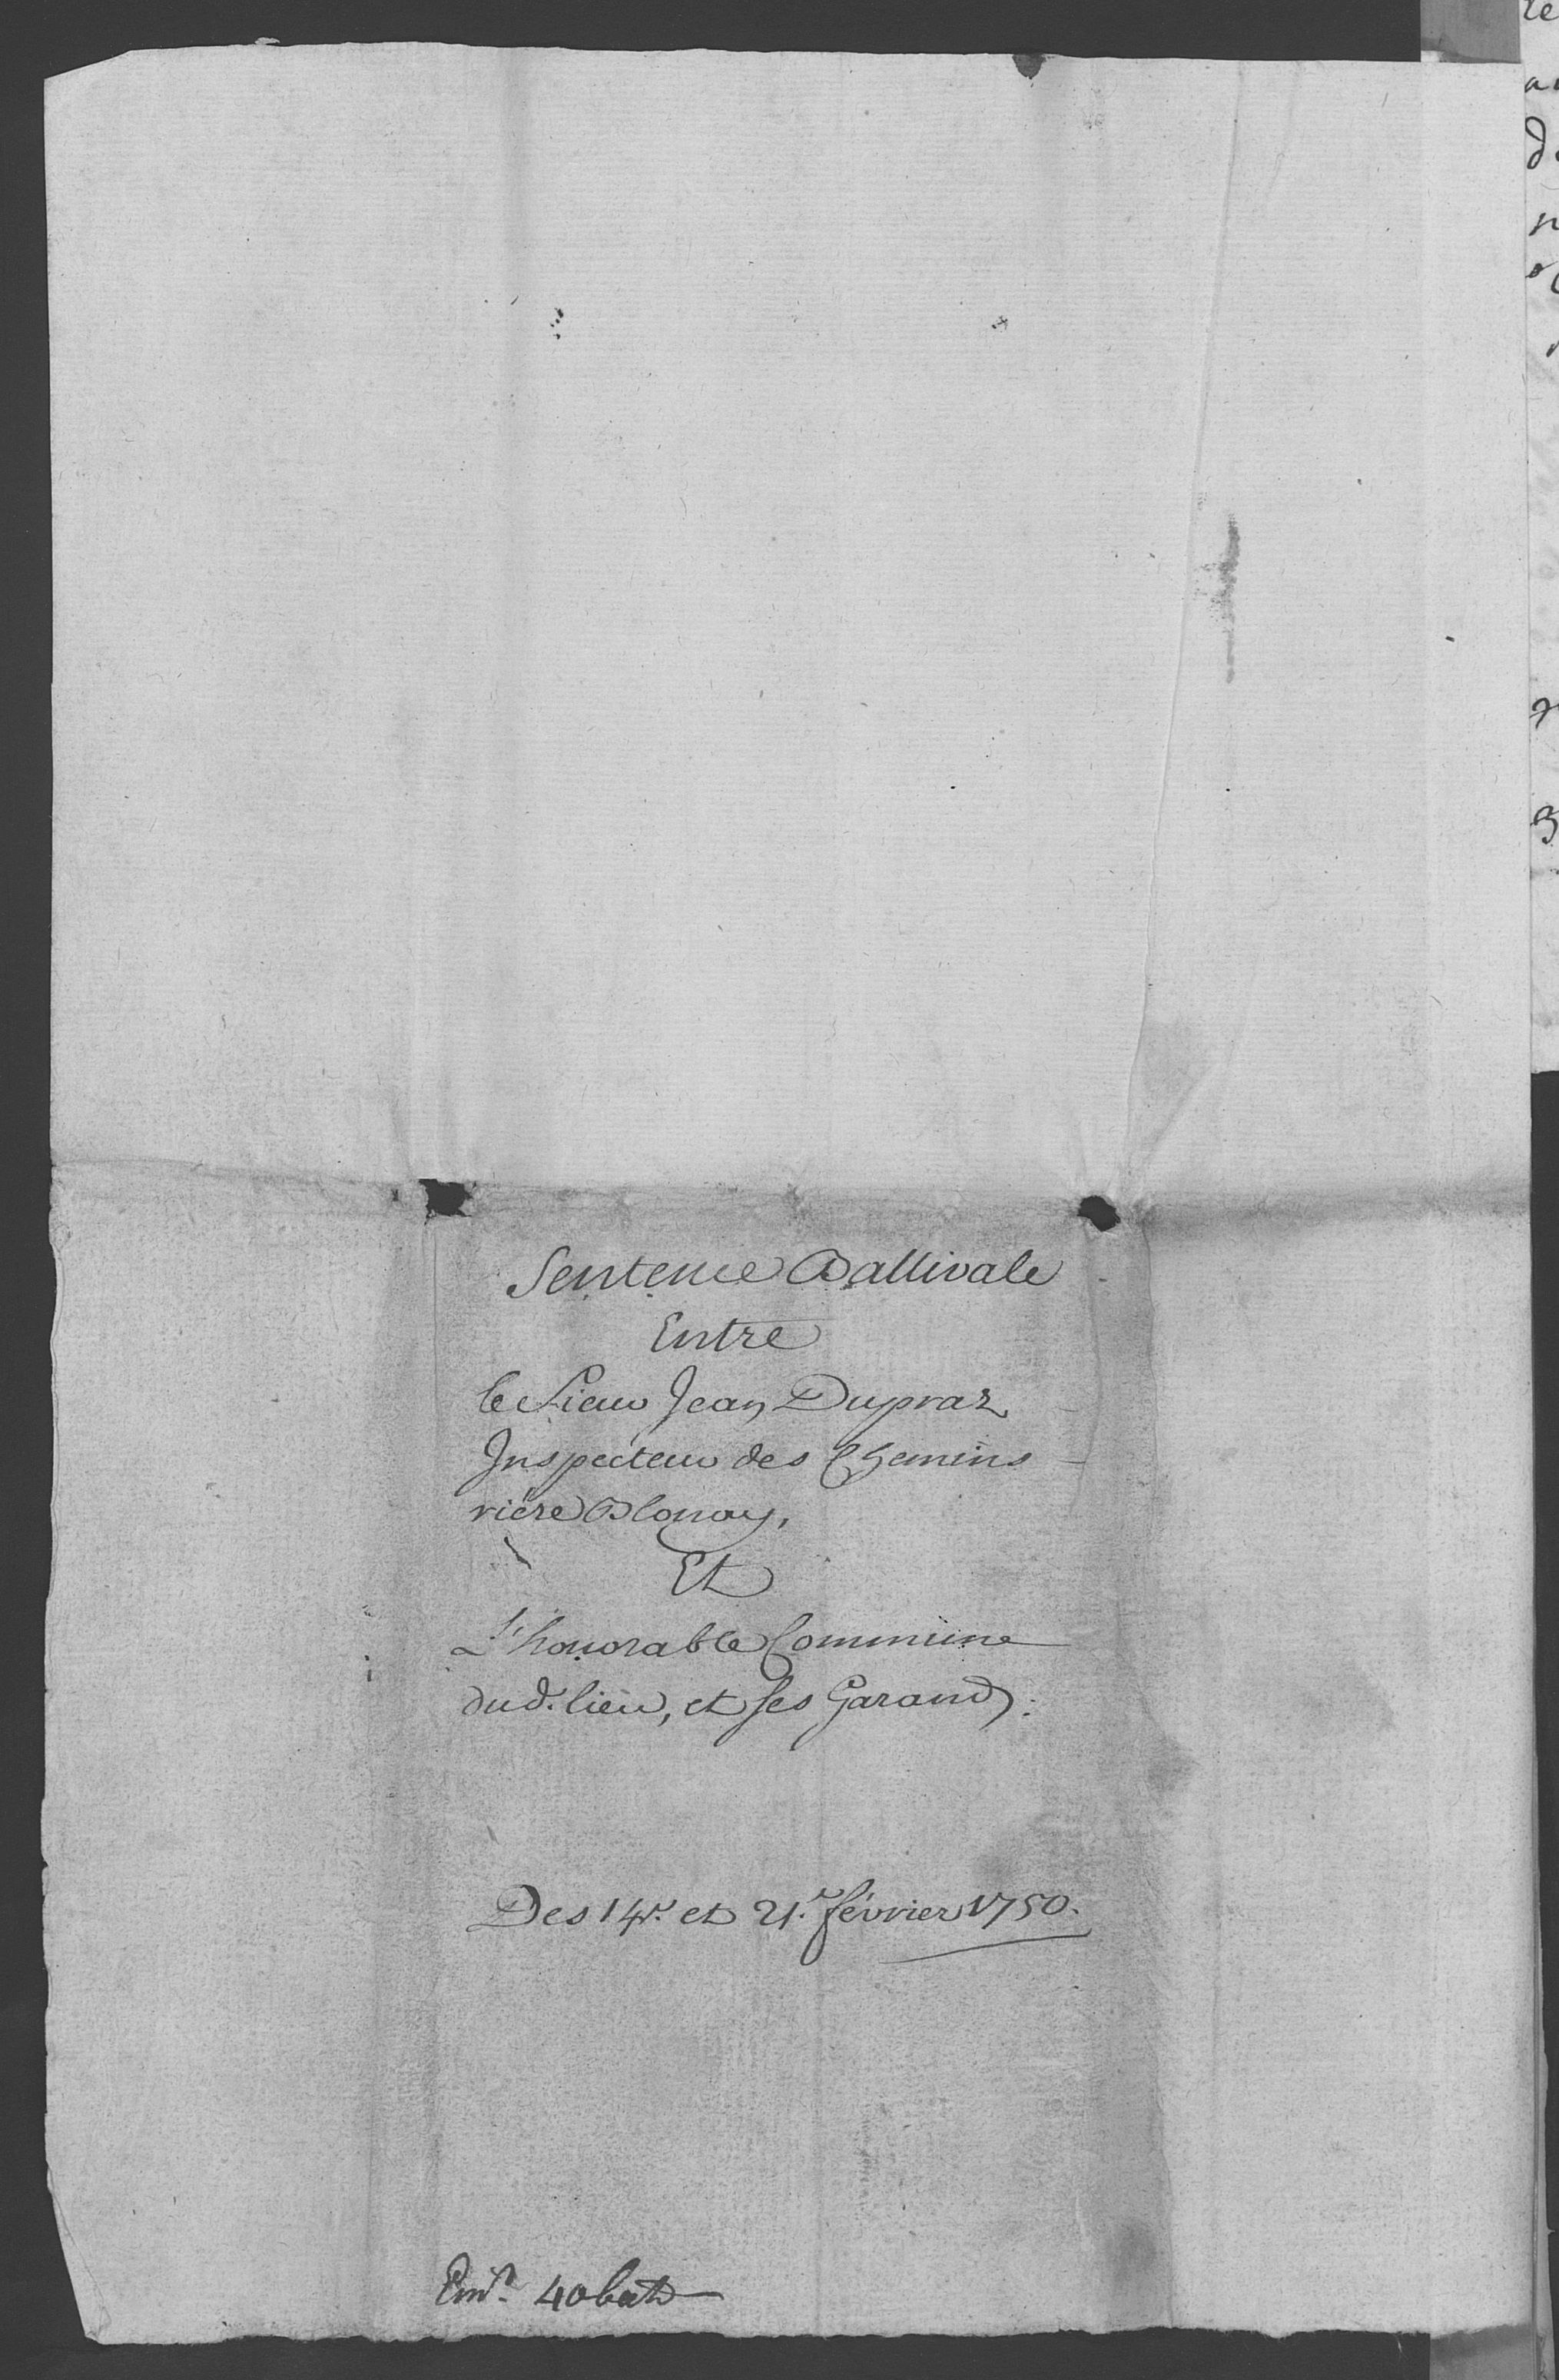 Sentence Ballivale
Entre
le Sieur Jean Dupraz
Inspecteur des Chemins
riére Blonay,
Et
L'honorable Commune
dud. lieu, et ses Garands:
Des 14e. et 21e. février 1750.
40 batz